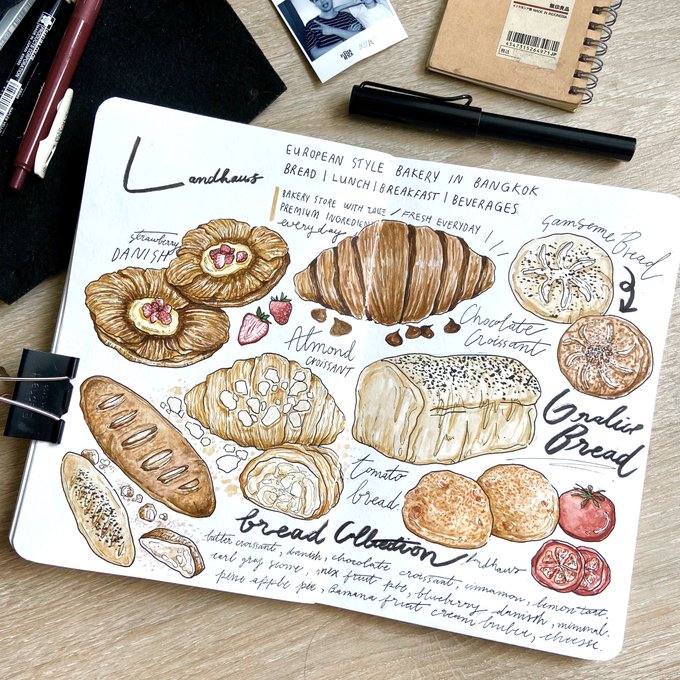 Landhaus
EUROPEAN STYLE BAKERY IN BANGKOK
BREAD | LUNCH | BREAKFAST | BEVERAGES
BAKERY STORE WITH / FRESH EVERYDAY |
PREMIUM INGREDIEN
everyday
strawberry
DANISH
Almond
CROISSANT
Chocolate
Croissant
Bread
Bread
tomato
bread
bread Collection
butter croissant, danish, chocolate croissant, cinnamon, lemon tart.
earl gray scone, fruit pie, blueberry danish, minimal.
pine apple pie, Banana fruit cream, cheese.
MADE IN INDONESIA